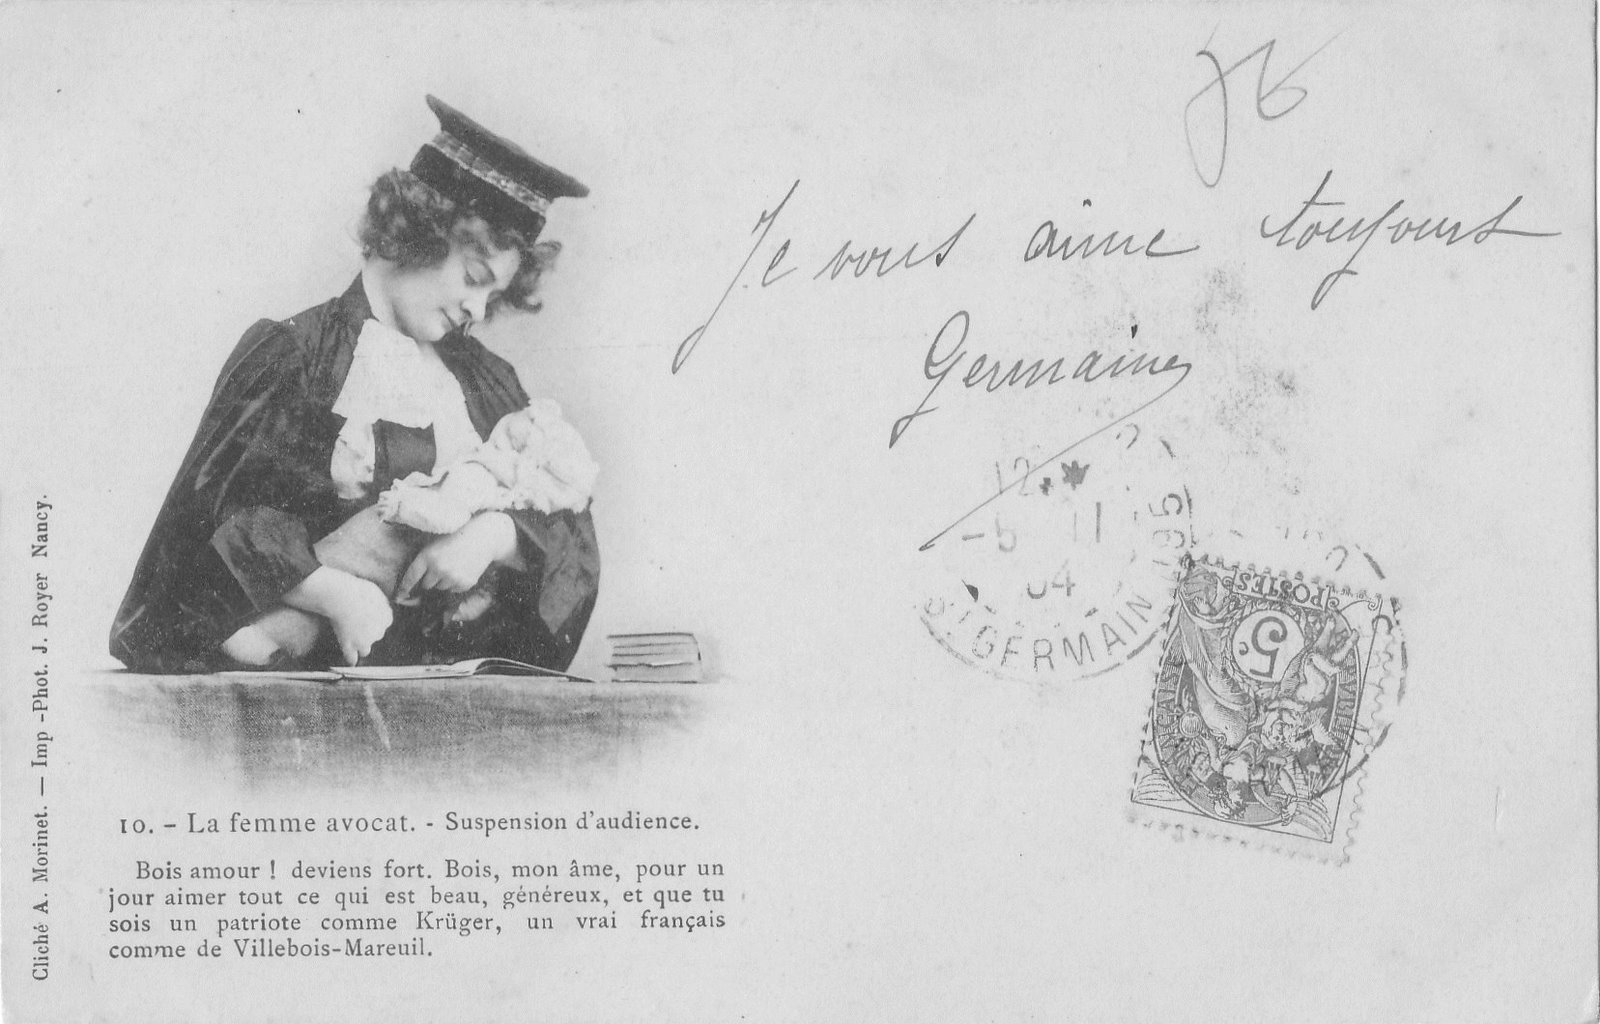 Je vous aime toujours
Germaine
12
-5 11
04
ST GERMAIN
POSTES
5c
10. – La femme avocat. - Suspension d'audience.
Bois amour ! deviens fort. Bois, mon âme, pour un
jour aimer tout ce qui est beau, généreux, et que tu
sois un patriote comme Krüger, un vrai français
comme de Villebois-Mareuil.
Cliché A. Morinet. — Imp -Phot. J. Royer Nancy.